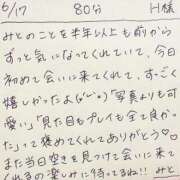 6/17 80分 H様
みとのことを半年以上も前から
ずっと気になってくれていて、今日
初めて会いに来てくれて、すっごく
嬉しかったよ(>◡<)「写真よりも可
愛い」「見た目もプレイも全て良かっ
た」って褒めてくれてありがとう♡
また当日空きを見つけて会いに来て
くれるの楽しみに待ってるね!! みと